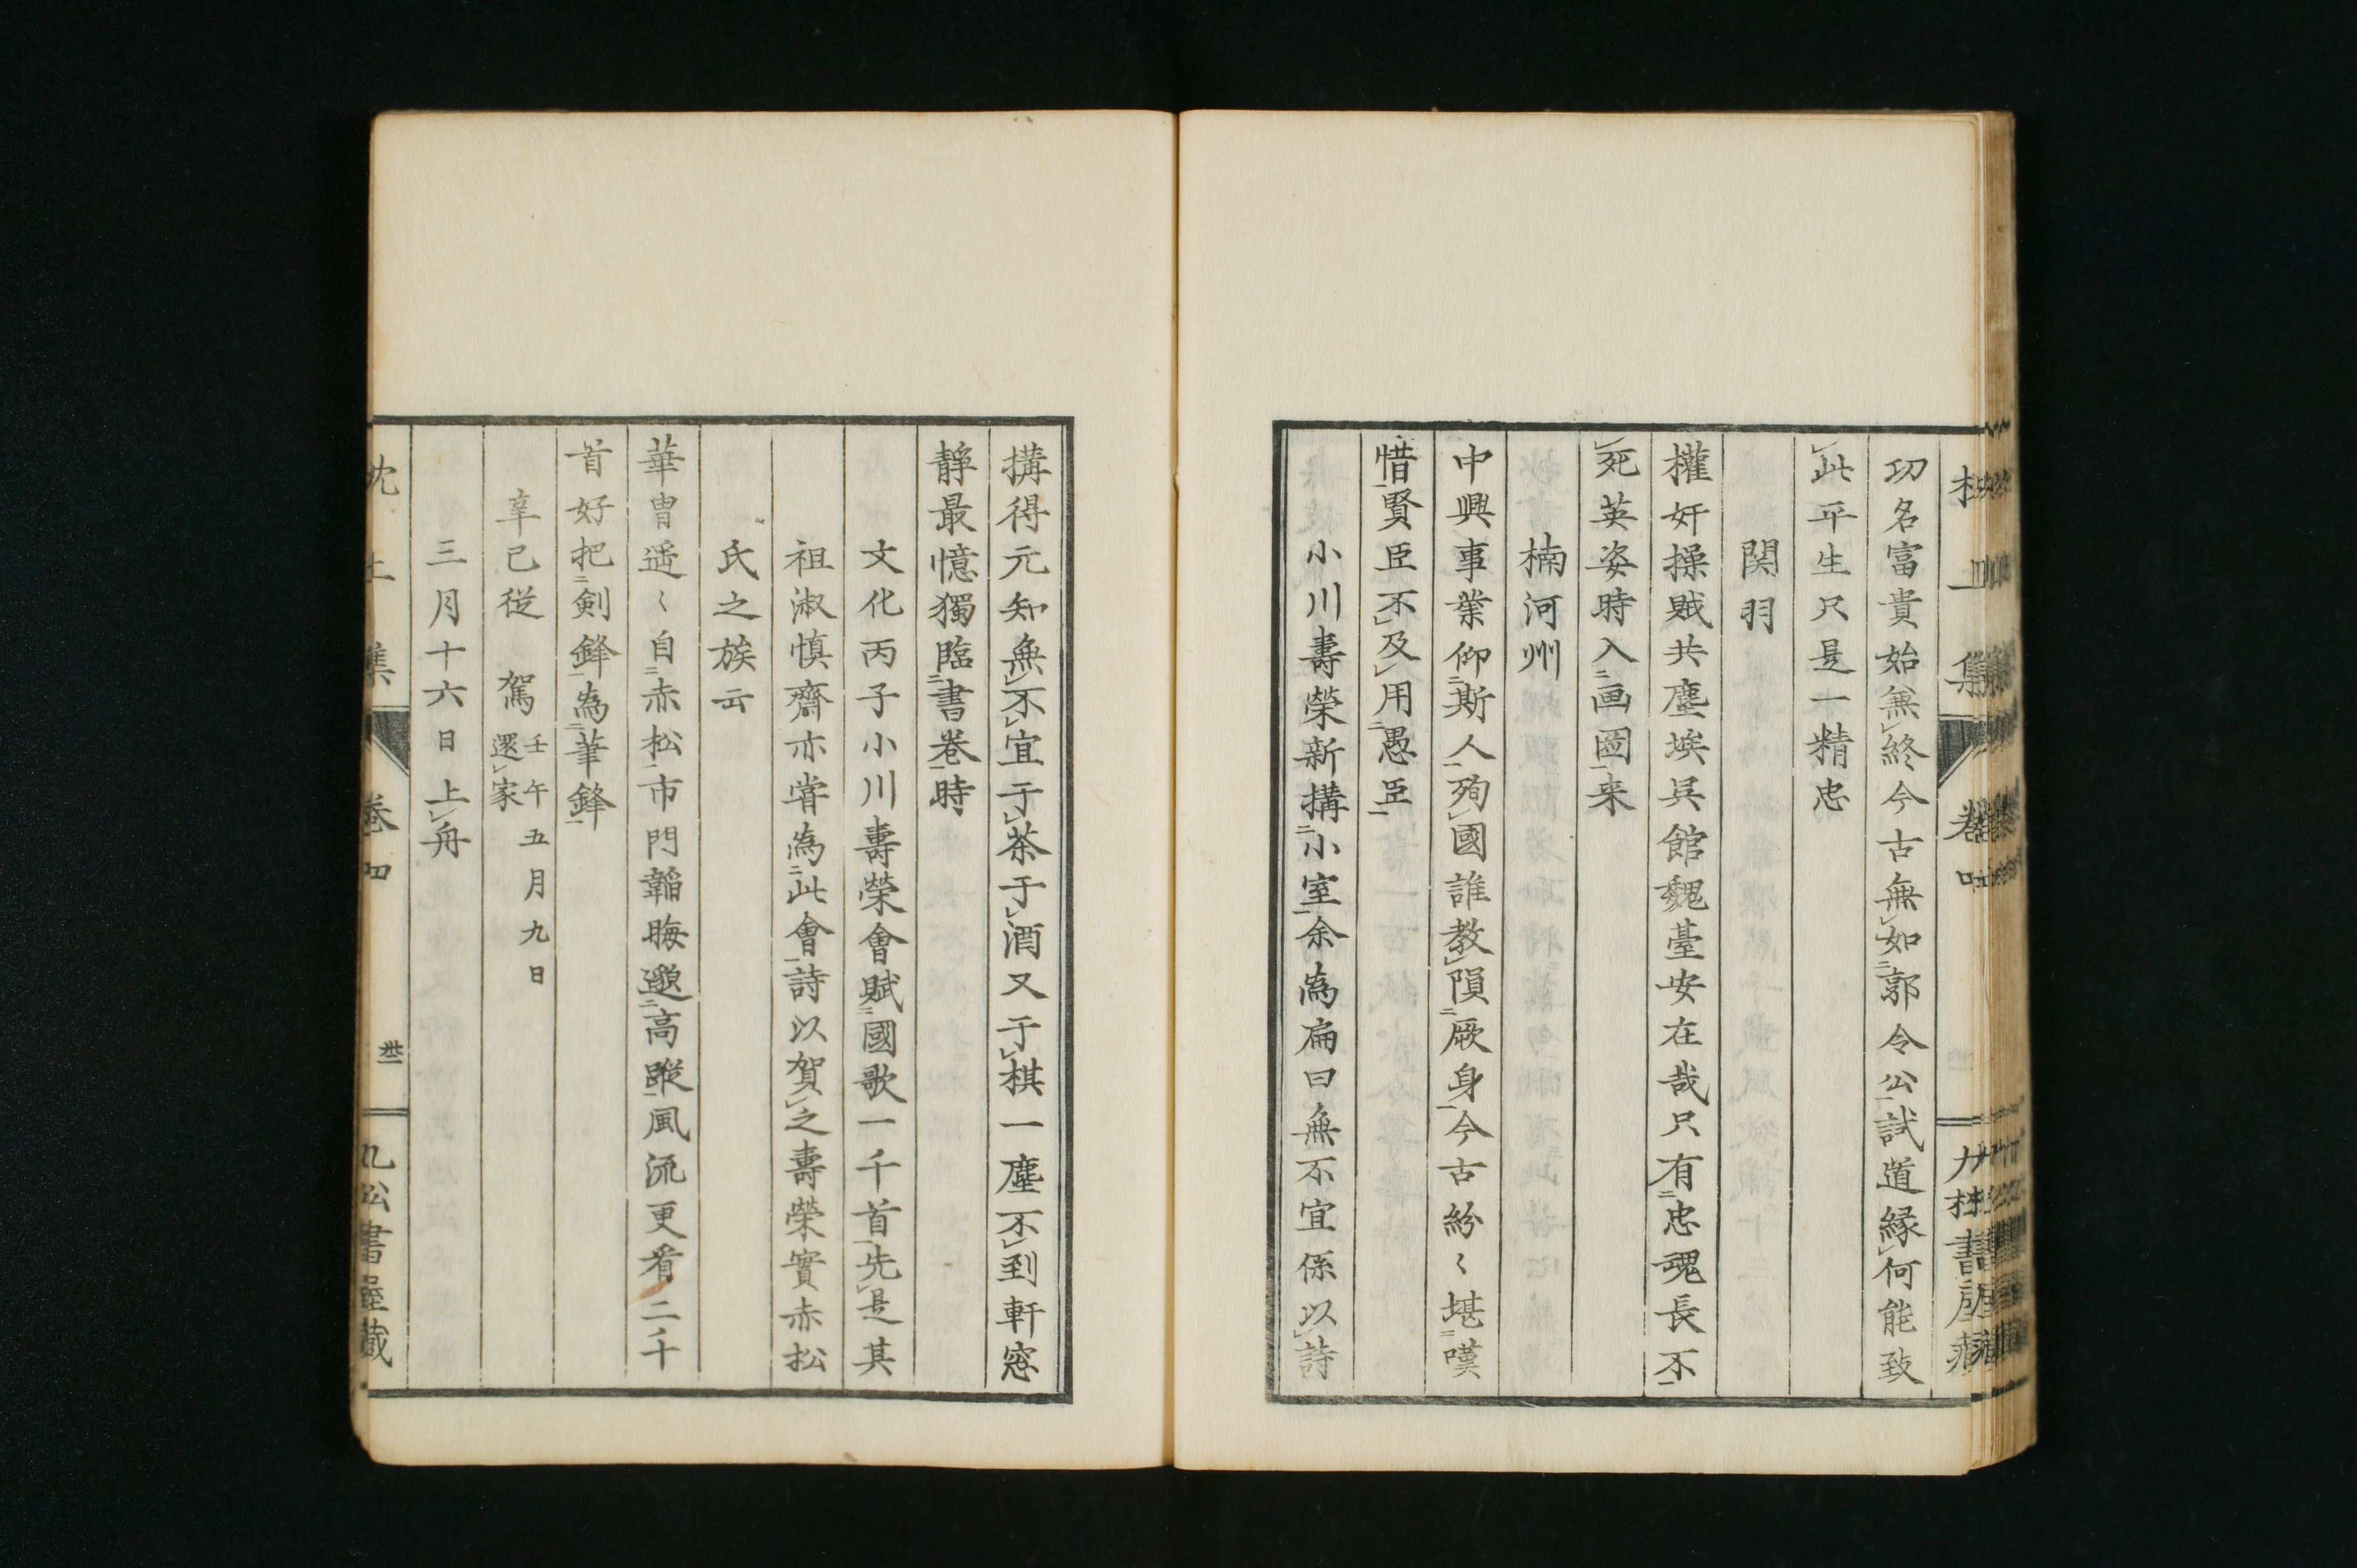 功名富貴始無終今古無如郭令公試道縁何能致
此平生只是一精忠
関羽
權奸操賊共塵埃呉館魏臺安在哉只有忠魂長不
死英姿時入画図来
楠河州
中興事業仰斯人殉國誰教隕厥身今古紛〻堪嘆
惜賢臣不及用愚臣
小川壽榮新搆小室余為扁曰無不宜係以詩
搆得元知無不宜于茶于酒又于棋一塵不到軒窓
靜最憶獨臨書巻時
文化丙子小川壽榮會賦國歌一千首先是其
祖淑慎齋亦嘗為此會詩以賀之壽榮實赤松
氏之族云
華冑遥〻自赤松市門韜晦邈高蹤風流更看二千
首好把剣鋒為筆鋒
辛已從 駕 壬午五月九日
還家
三月十六日上舟
巻四
卅一
書屋藏